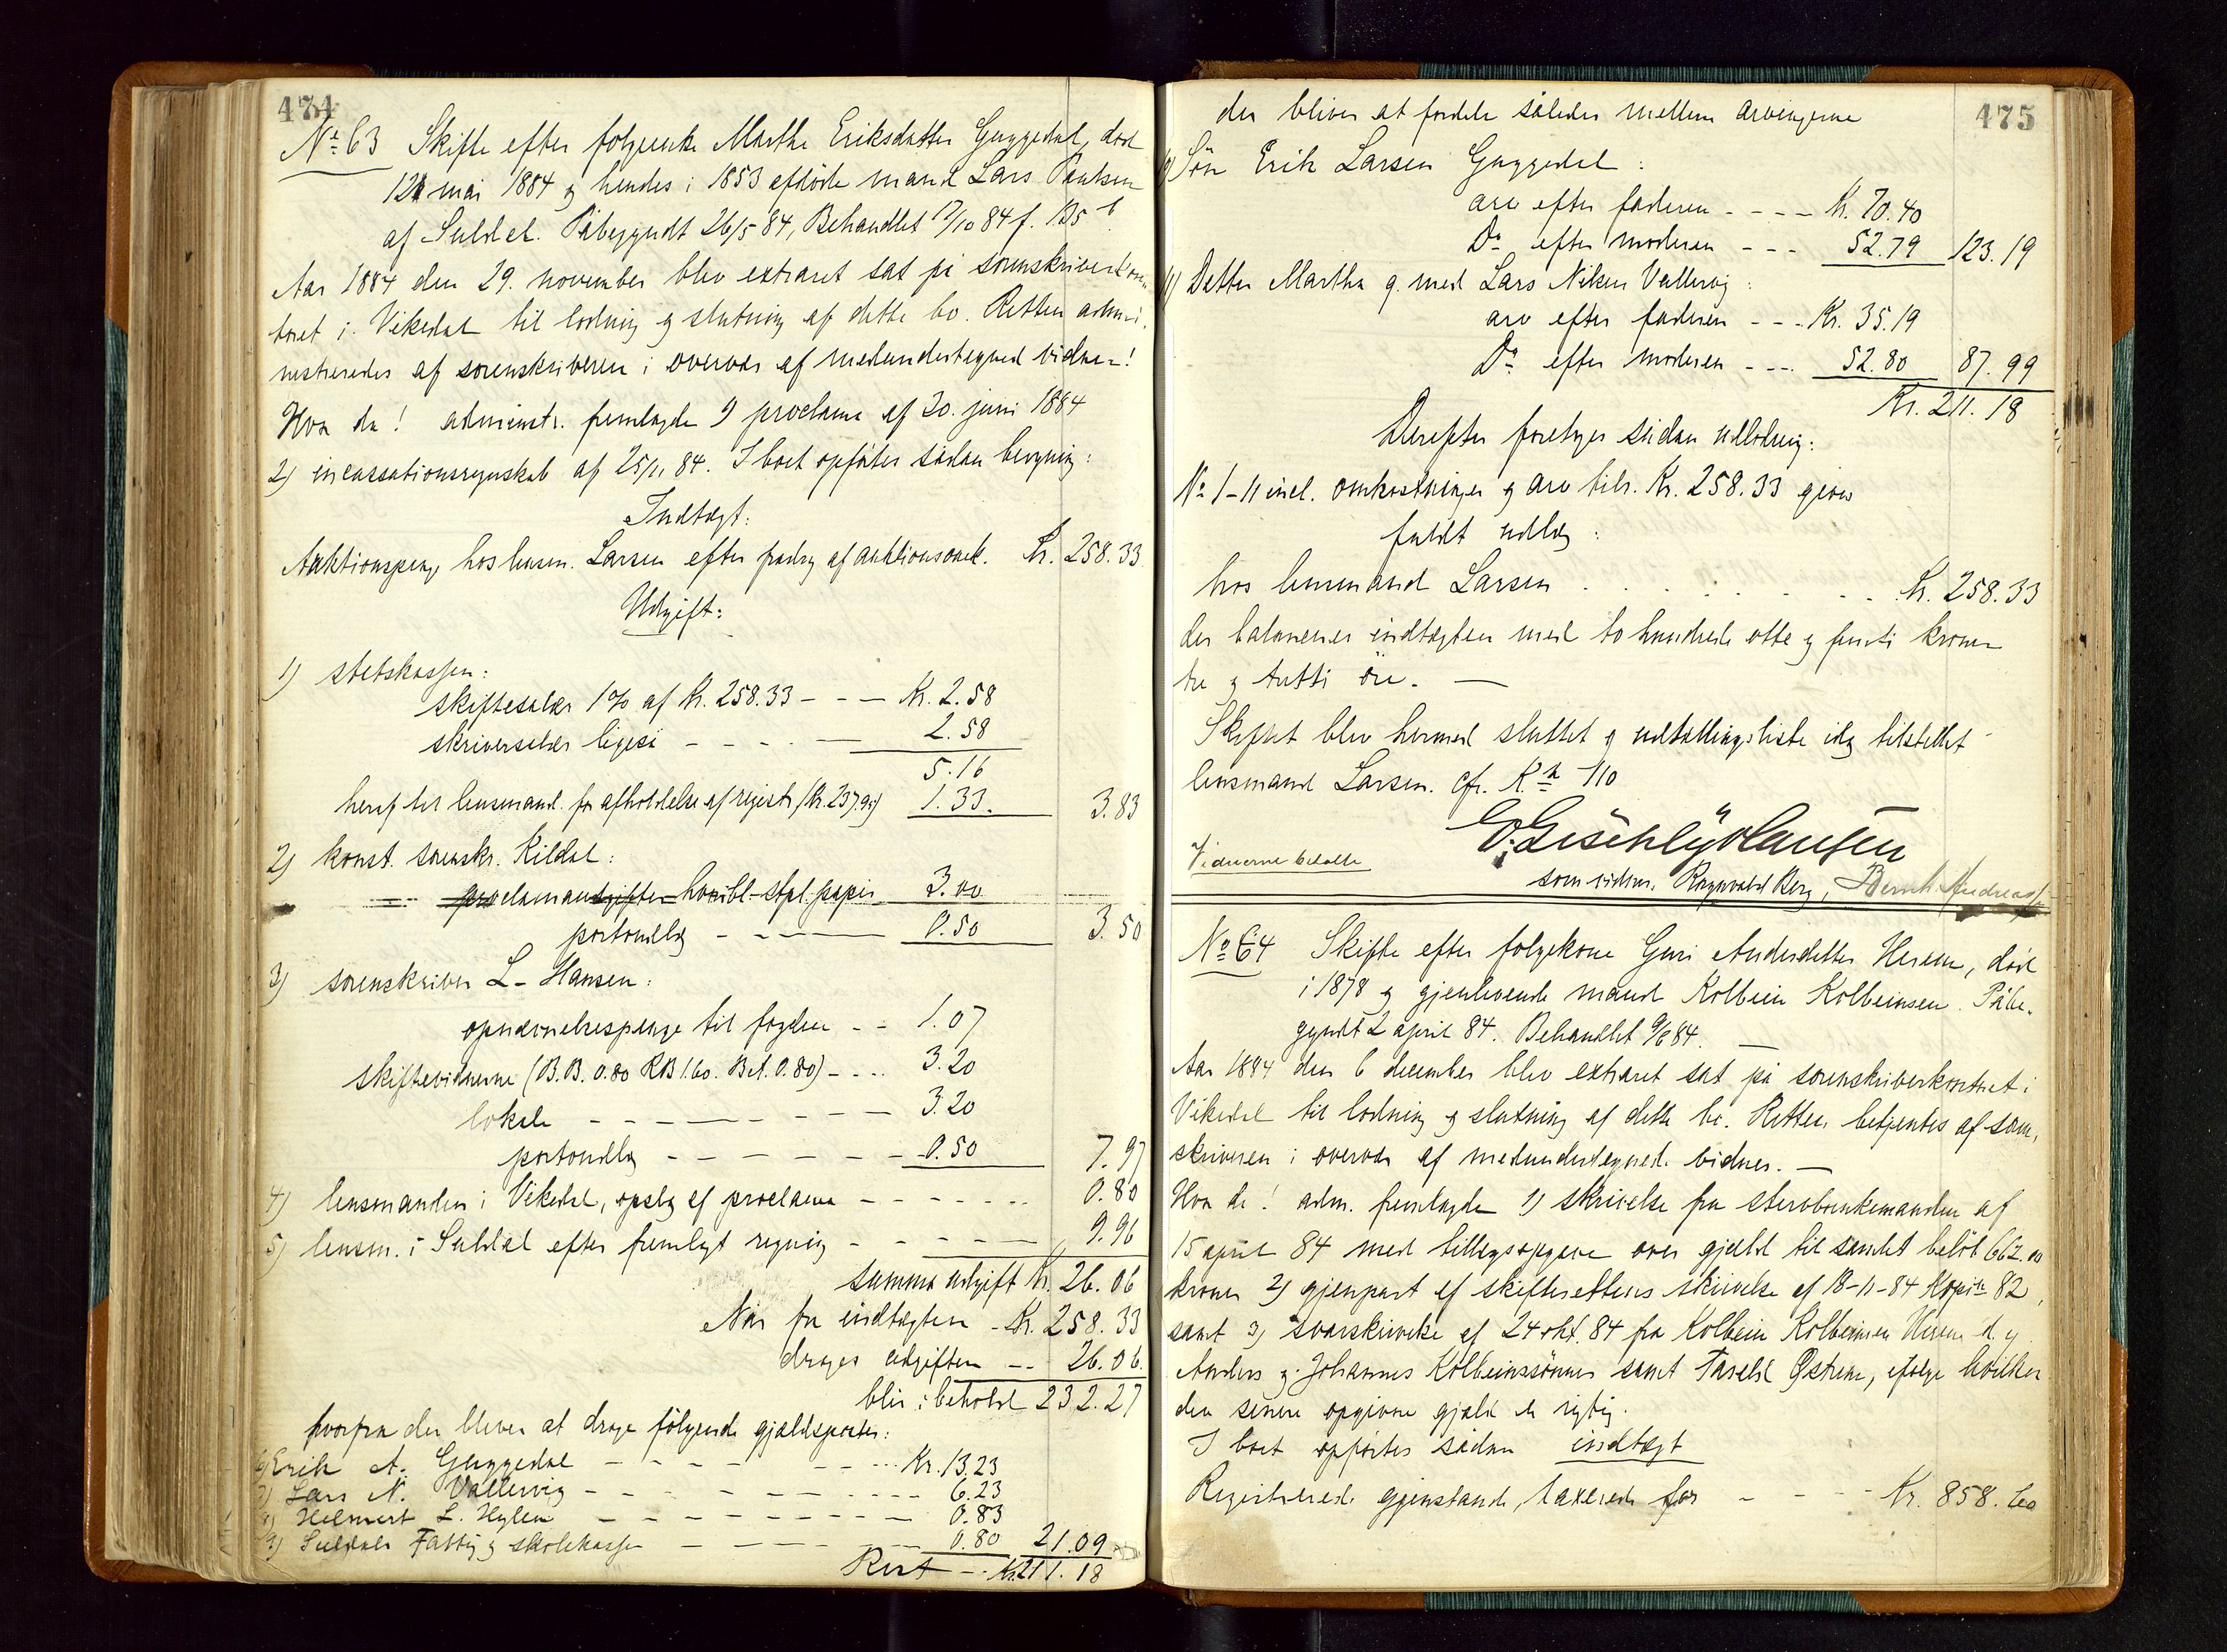 474
No 63 Skifte efter folgeenke Marthe Eriksdatter Guggedal, död
12 mai 1884 og hendes i 1853 afdöde mand Lars Paulsen
af Suldal. Påbegyndt 26/5 84, Behandlet 17/10 84 f. 135 b
Aar 1884 den 29. november blev extraret sat på sorenskriverkon-
toret i Vikedal til lodning og slutning af dette bo. Retten admi-
nistreredes af sorenskriveren i overvær af medundertegned vidner!
Hvor da! administr. fremlagde 1) proclama af 20. juni 1884
2) incassationsregnskab af 25/11 84. I boet opförtes sådan beregning:
Indtægt:
Auktionspenge hos lensm. Larsen efter fradrag af auktionsomk. Kr. 258.33
Udgift:
1) statskassen:
skiftesalær 1% af Kr. 258.33 - - - Kr. 2.58
skriversalær ligeså - - - - 2.58
5.16
heraf til lensmand. for afholdelse af registr. (Kr. 237.95) 1.33. 3.83
2) konst. sorenskr. Kildal:
proclamaudgifter 3.00
portoudlæg - - - - 0.50 3.50
3) sorenskriver L-Hansen:
opnævnelsespenge til fogden - - 1.07
skiftevidnerne (B.B. 0.80 RB 1.60. B.A. 0.80) - - - 3.20
lokale - - - - - - - 3.20
portoudlæg - - - - - - 0.50 7.97
4) lensmanden i Vikedal, opslag af proclama - - - - - - 0.80
5) lensm. i Suldal efter fremlagt regning - - - - - 9.96
summa udgift Kr. 26.06
Når fra indtægten - Kr. 258.33
drages udgiften - - 26.06.
bliver i behold 232.27
hvorfra der bliver at drage fölgende gjældsposter:
6) Erik A. Guggedal - - - - - - - Kr. 13.23
7) Lars N. Vallervig - - - - - - - 6.23
8) Helmert L. Hylen - - - - - - - 0.83
9) Suldals Fattig og skolekasse - - - - 0.80 21.09
Rest - - Kr. 211.18
475
der bliver at fordele således mellem arvingerne
a) Sön Erik Larsen Guggedal:
arv efter faderen - - - - Kr. 70.40
Do efter moderen - - - 52.79 123.19
b) Datter Martha g. med Lars Nilsen Vallervig:
arv efter faderen - - - Kr. 35.19
Do efter moderen - - - 52.80 87.99
Kr. 211.18
Derefter foretoges sådan udlodning:
No 1-11 incl. omkostninger og arv tils. Kr. 258.33 gives
fuldt udlæg:
hos lensmand Larsen - - - - - - Kr. 258.33
der balancerer indtægten med to hundrede otte og femti kroner
tre og tretti öre. -
Skiftet blev hermed sluttet og udtællingsliste idag tilstillet
lensmand Larsen. cfr. K. 110
Vidnerne betalte
som vidner. Ragnvald Berg, Bernh. Andreas
No 64 Skifte efter folgekone Guri Andersdatter Herem, död
i 1878 og gjenlevende mand Kolbein Kolbeinsen. Påbe-
gyndt 2 april 84. Behandlet 9/6 84. -
Aar 1884 den 6 december blev extraret sat på sorenskriverkontoret i
Vikedal til lodning og slutning af dette bo. Retten betjentes af soren-
skriveren i overvær af medundertegnede vidner. -
Hvor da! adm. fremlagde 1) skrivelse fra stervboenkemanden af
15 april 84 med tillægsopgave over gjæld til samlet belöb 662.00
kroner 2) gjenpart af skifterettens skrivelse af 18-11-84 Kopi 82,
samt 3) svarskrivelse af 24 okt. 84 fra Kolbein Kolbeinsen Herem d.y.
Anders og Johannes Kolbeinssönner samt Tarald Östrem, ifölge hvilken
den senere opgivne gjæld er rigtig.
I boet opförtes sådan indtægt
Registrerede gjenstande, taxerede for - - - - Kr. 858.60